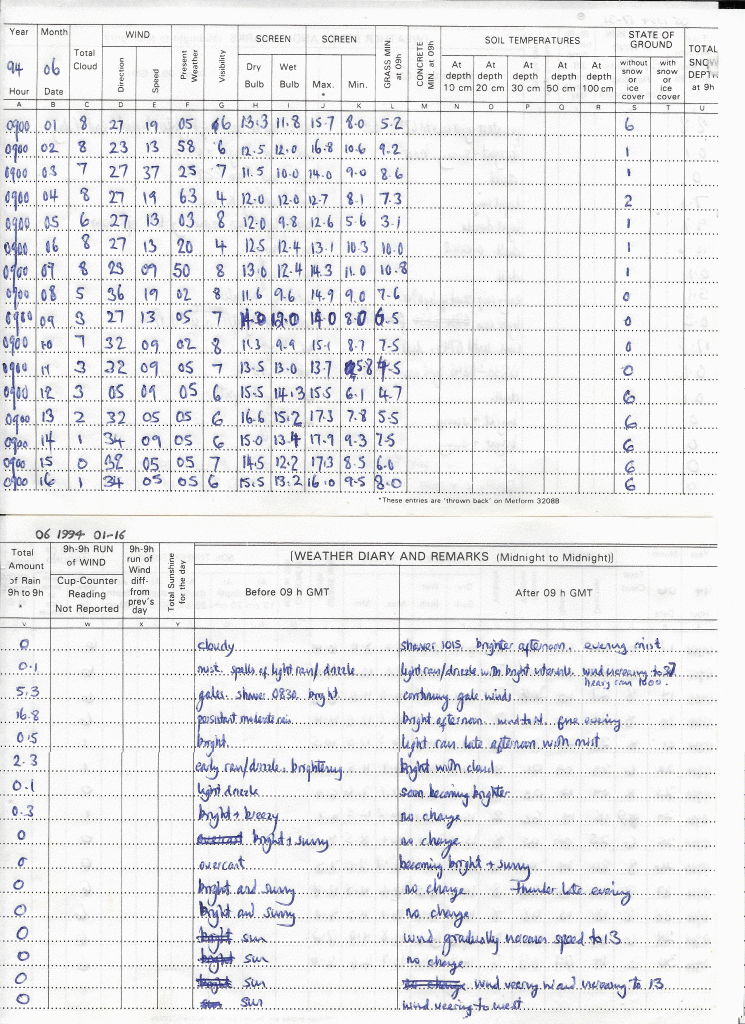 Year Month Total Cloud WIND Present Weather Visibility SCREEN SCREEN GRASS MIN at 09h CONCRETE MIN. at 09h SOIL TEMPERATURES STATE OF GROUND TOTAL SNOW DEPTH at 9h
94 06 Direction Speed Dry Bulb Wet Bulb Max. * Min. At depth 10 cm At depth 20 cm At depth 30 cm At depth 50 cm At depth 100 cm without snow or ice cover with snow or ice cover
Hour Date
A B C D E F G H I J K L M N O P Q R S T U
0900 01 8 27 19 05 6 13.3 11.8 15.7 8.0 5.2 6
0900 02 8 23 13 58 6 12.5 12.0 16.8 10.6 9.2 1
0900 03 7 27 37 25 7 11.5 10.0 14.0 9.0 8.6 1
0900 04 8 27 19 63 4 12.0 12.0 12.7 8.1 7.3 2
0900 05 6 27 13 03 8 12.0 9.8 12.6 5.6 3.1 1
0900 06 8 27 13 20 4 12.5 12.4 13.1 10.3 10.0 1
0900 07 8 23 09 50 8 13.0 12.4 14.3 11.0 10.8 1
0900 08 5 36 19 02 8 11.6 9.6 14.9 9.0 7.6 0
0900 09 3 27 13 05 7 14.0 12.0 14.0 8.0 6.5 0
0900 10 7 32 09 02 8 11.3 9.9 15.1 8.7 7.5 0
0900 11 3 32 09 05 7 13.5 13.0 13.7 5.8 4.5 0
0900 12 3 05 09 05 6 15.5 14.3 15.5 6.1 4.7 6
0900 13 2 32 05 05 6 16.6 15.2 17.3 7.8 5.5 6
0900 14 1 34 09 05 6 15.0 13.4 17.9 9.3 7.5 6
0900 15 0 32 05 05 7 14.5 12.2 17.3 8.5 6.0 6
0900 16 1 34 05 05 6 15.5 13.2 16.0 9.5 8.0 6
*These entries are 'thrown back' on Metform 3208B
06 1994 01-16
Total Amount of Rain 9h to 9h * 9h-9h RUN of WIND Cup-Counter Reading Not Reported 9h-9h run of Wind diff- from prev's day Total Sunshine for the day [WEATHER DIARY AND REMARKS (Midnight to Midnight)]
Before 09 h GMT After 09 h GMT
V W X Y
0 cloudy shower 1015. brighter afternoon. evening mist
0.1 mist. spells of light rain/drizzle light rain/drizzle with bright intervals. wind increasing to 37
heavy rain 1600.
5.3 gales. shower 0830. bright continuing gale winds
16.8 persistent moderate rain bright afternoon. wind to fine evening
0.5 bright. light rain late afternoon with mist
2.3 early rain/drizzle. brightening bright with cloud
0.1 light drizzle soon becoming brighter
0.3 bright + breezy no change
0 overcast bright + sunny no change
0 overcast becoming bright + sunny
0 bright and sunny no change Thunder late evening
0 bright and sunny no change
0 bright sun wind gradually increases speed to 13
0 bright sun no change
0 bright sun no change wind veering and increasing to 13
0 sun sun wind veering to west